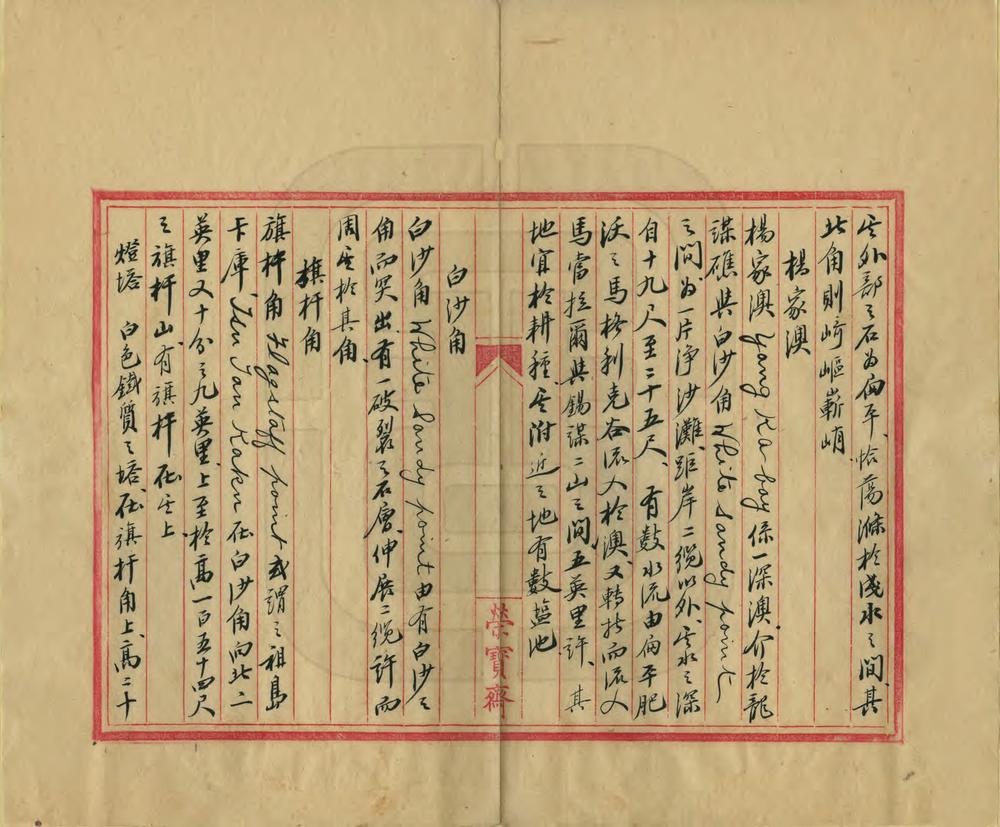 其外部之石为扁平、恰荡滌於淺水之間、其
北角則﨑嶇嶄峭
楊家澳
楊家澳 Yang Ka bay 係一深澳、介於龍
謀礁與白沙角 White Sandy point
之間、为一片淨沙灘、距岸二纜以外、其水之深
自十九尺至二十五尺、有數水流由扁平肥
沃之馬格利克谷流入於澳、又轉折而流入
馬當拉爾與錫謀二山之間、五英里許、其
地宜於耕種、其附近之地有數盐池
白沙角
白沙角 White Sandy point 由有白沙之
角而突出、有一破裂之石層、伸展二纜許而
周其於其角
旗杆角
旗杆角 Flagstaff point 或謂之祖島
卡庫 Tsu Tau Kaku 在白沙角向北二
英里又十分之九英里、上至於高一百五十四尺
之旗杆山、有旗杆在其上
燈塔 白色鐵質之塔在旗杆角上、高二十
榮寶齋